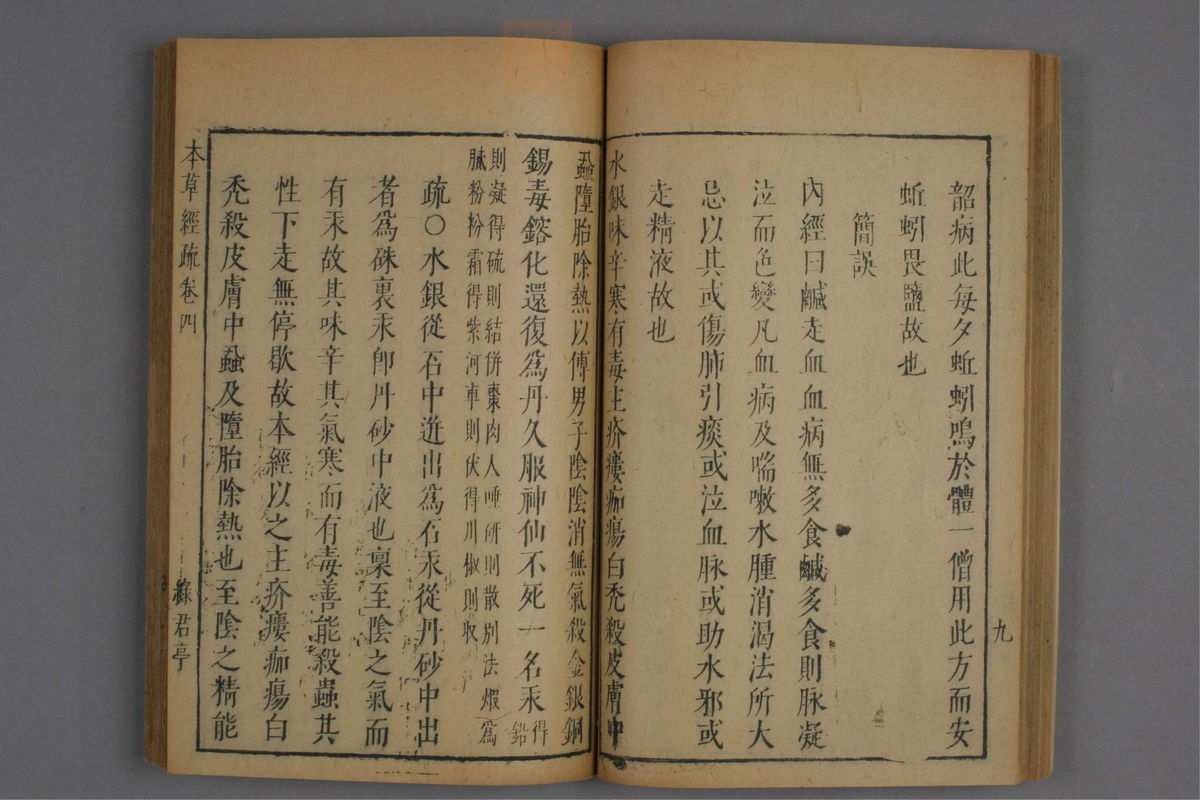 韶病此每夕蚯蚓鳴於體一僧用此方而安
蚯蚓畏鹽故也
簡誤
內經曰鹹走血血病無多食鹹多食則脉凝
泣而色變凡血病及喘嗽水腫消渴法所大
忌以其或傷肺引痰或泣血脉或助水邪或
走精液故也
水銀味辛寒有毒主疥瘻痂瘍白禿殺皮膚中
九
蝨墮胎除熱以傅男子陰陰消無氣殺金銀銅
錫毒鎔化還復爲丹久服神仙不死一名汞得鉛
則凝得硫則結併棗肉人唾研則散别法煆爲
膩粉粉霜得紫河車則伏得川椒則収
疏○水銀從石中迸出爲石汞從丹砂中出
者爲硃裏汞卽丹砂中液也稟至陰之氣而
有汞故其味辛其氣寒而有毒善能殺蟲其
性下走無停歇故本經以之主疥瘻痂瘍白
禿殺皮膚中蝨及墮胎除熱也至陰之精能
本草經疏卷四
綠君亭